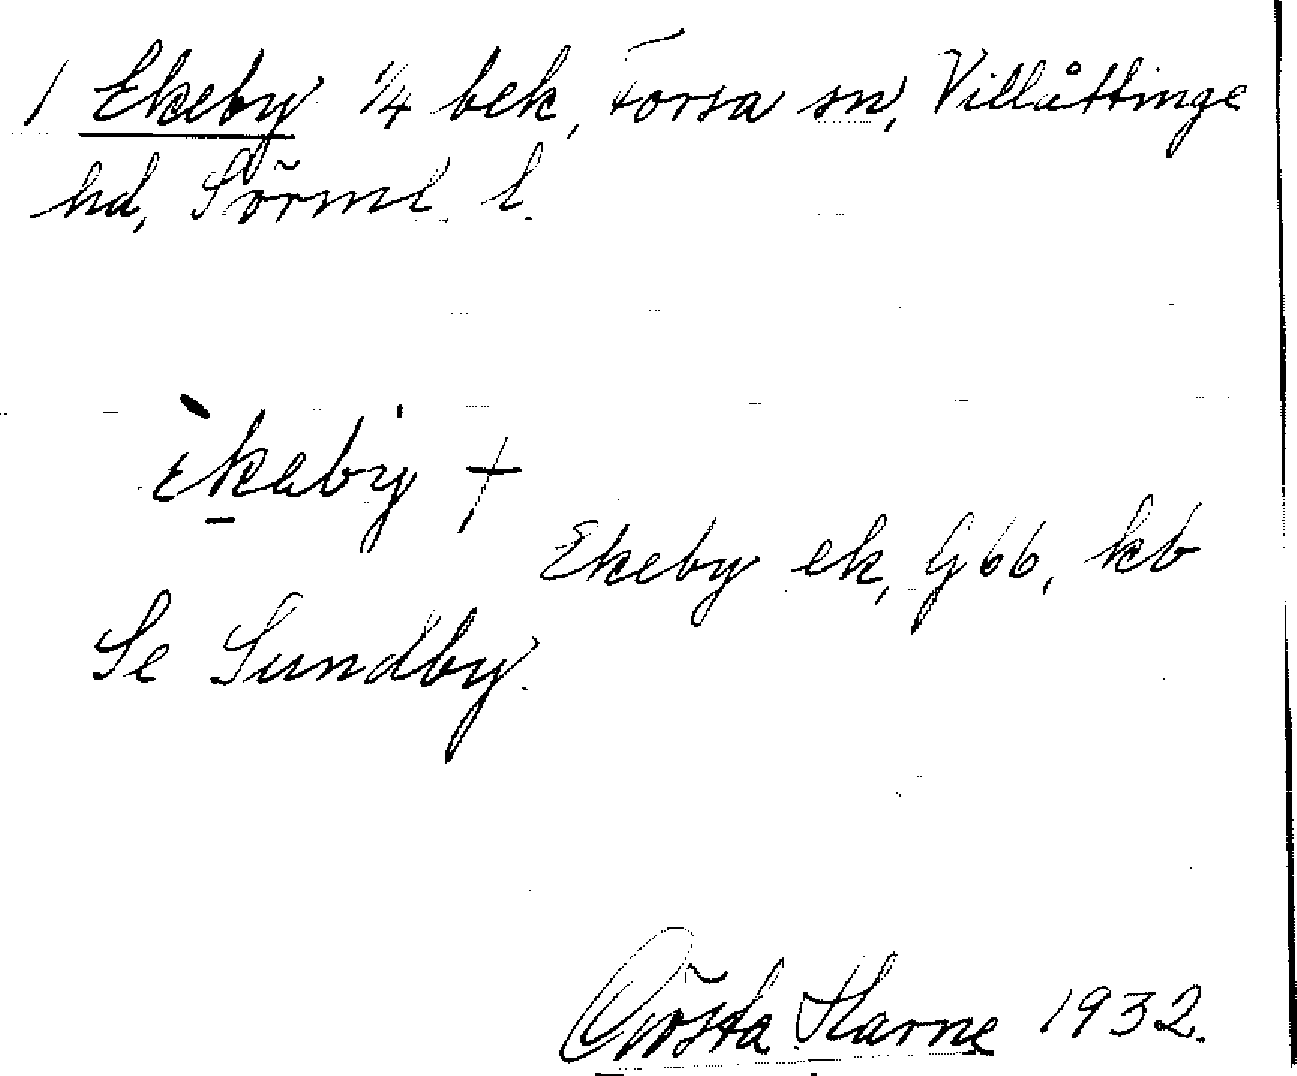 1 Ekeby 1/4 bek, Forsa sn, Villåttinge
hd, Sörml. l.
Èkebẙ +
Ekeby ek, G66, kb
Se Sundby.
Gösta 1932.